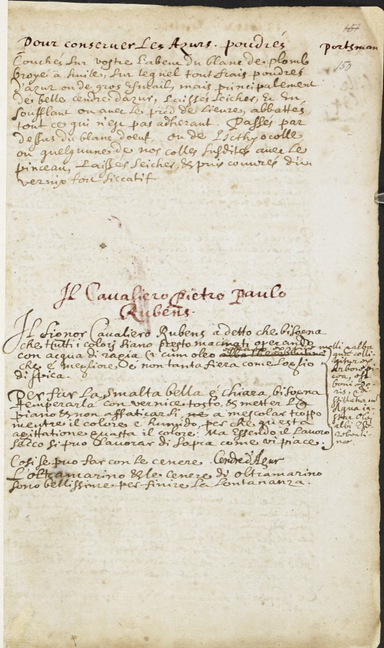 Pour conserver Les Azurs poudrés
Portsman
153
Couches sur vostre Labeur du blanc de plomb
broye a huile, sur lequel tout frais poudres
d'azur ou de gros esmail, mais principalement
de belle cendre d'azur, Laisses seicher, & En
soufflant ou avec le pied de lievre, abbattes
tout ce qui n'est pas adherant. Passes par
dessus du blanc d'oeuf, ou de Licthyocolle
ou quelqu'une de nos colles susdites avec le
pinceau, Laisses seicher, & puis couvres du
vernix fort siccatif
Il Cavaliero Pietro Paulo
Rubens.
Il Signor Cavaliero Rubens a detto che bisogna
che tutti i colori siano presto macinati operando
con acqua di ragia
che e megliore, & non tanta fiera come L'oglio
di spica.
Per far La smalta bella & chiara bisogna
temperarla con vernice tosto, & metter
piano & non affaticarsi, ne a mescolar troppo
mentre il colore e humido, per che questa
agittatione guasta il colore. Ma essendo il Lavoro
secco si puo Lavorar di sopra come vi piace.
Cosi se puo far con le cenere Cendre d'Azur
L'oltramarino & le cenere di oltramarino
sono bellissime per finire La Lontananza.
molli & alba
que colli